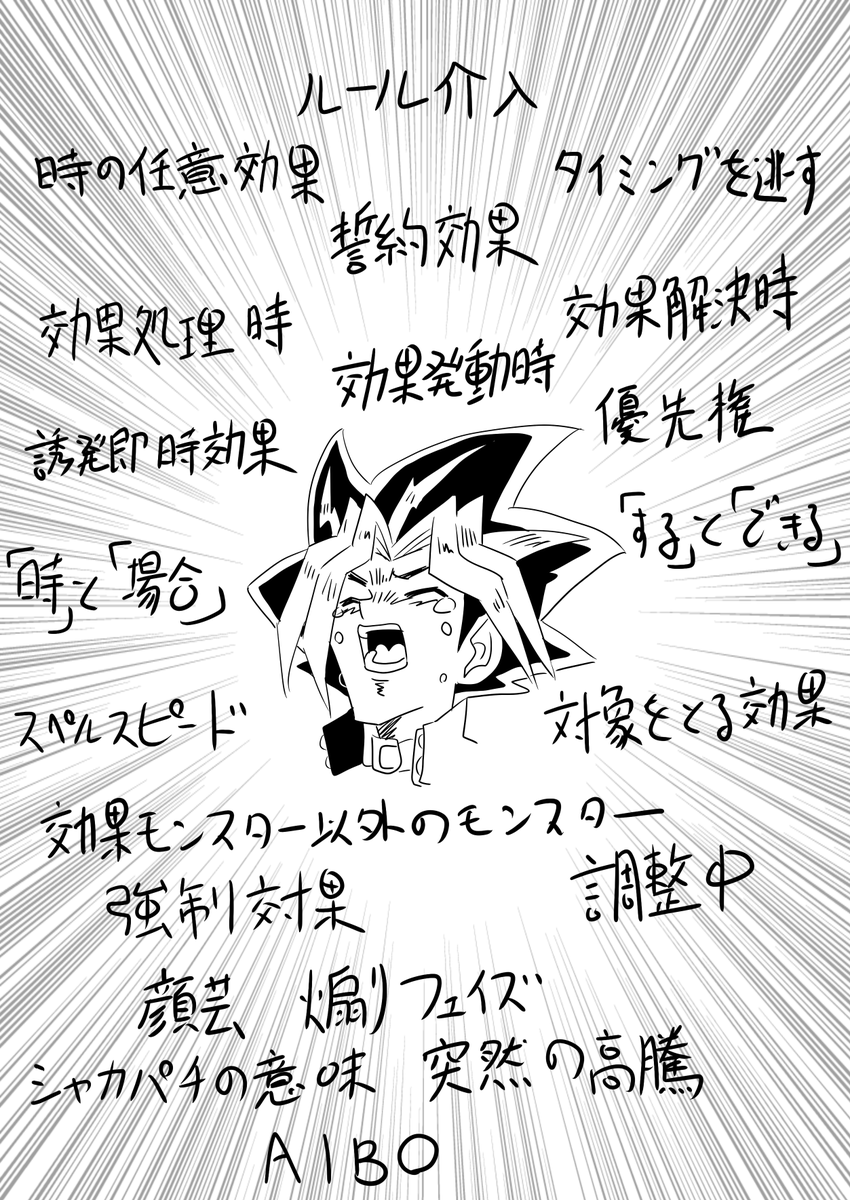 ルール介入
時の任意効果
タイミングを逃す
誓約効果
効果処理時
効果解決時
効果発動時
優先権
誘発即時効果
「する」と「できる」
「時」と「場合」
スペルスピード
対象をとる効果
効果モンスター以外のモンスター
強制対果
調整中
顔芸 煽りフェイズ
シャカパチの意味 突然の高騰
AIBO